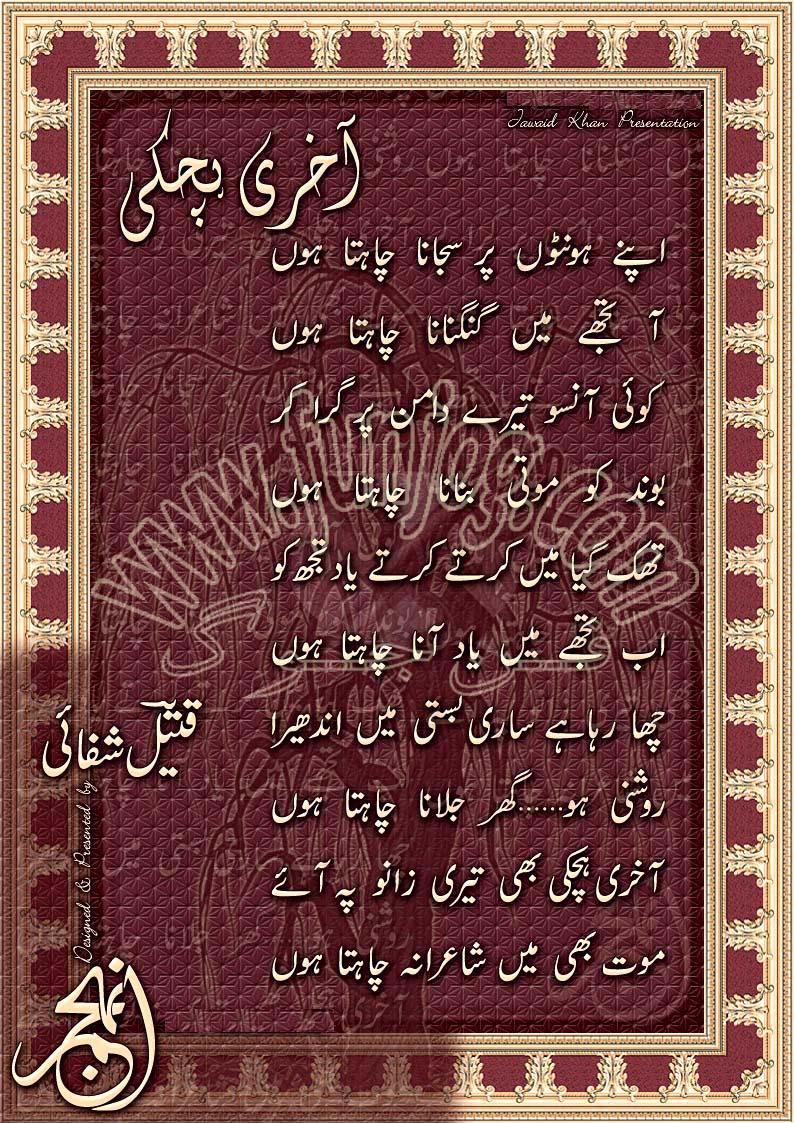 Jawaid Khan Presentation
آخری ہچکی
اپنے ہونٹوں پر سجانا چاہتا ہوں
آ تجھے میں گنگنانا چاہتا ہوں
کوئی آنسو تیرے دامن پر گرا کر
بوند کو موتی بنانا چاہتا ہوں
تھک گیا میں کرتے کرتے یاد تجھ کو
اب تجھے میں یاد آنا چاہتا ہوں
چھا رہا ہے ساری بستی میں اندھیرا
روشنی ہو......گھر جلانا چاہتا ہوں
آخری ہچکی بھی تیری زانو پہ آئے
موت بھی میں شاعرانہ چاہتا ہوں
قتیل شفائی
Designed & Presented by
انجم